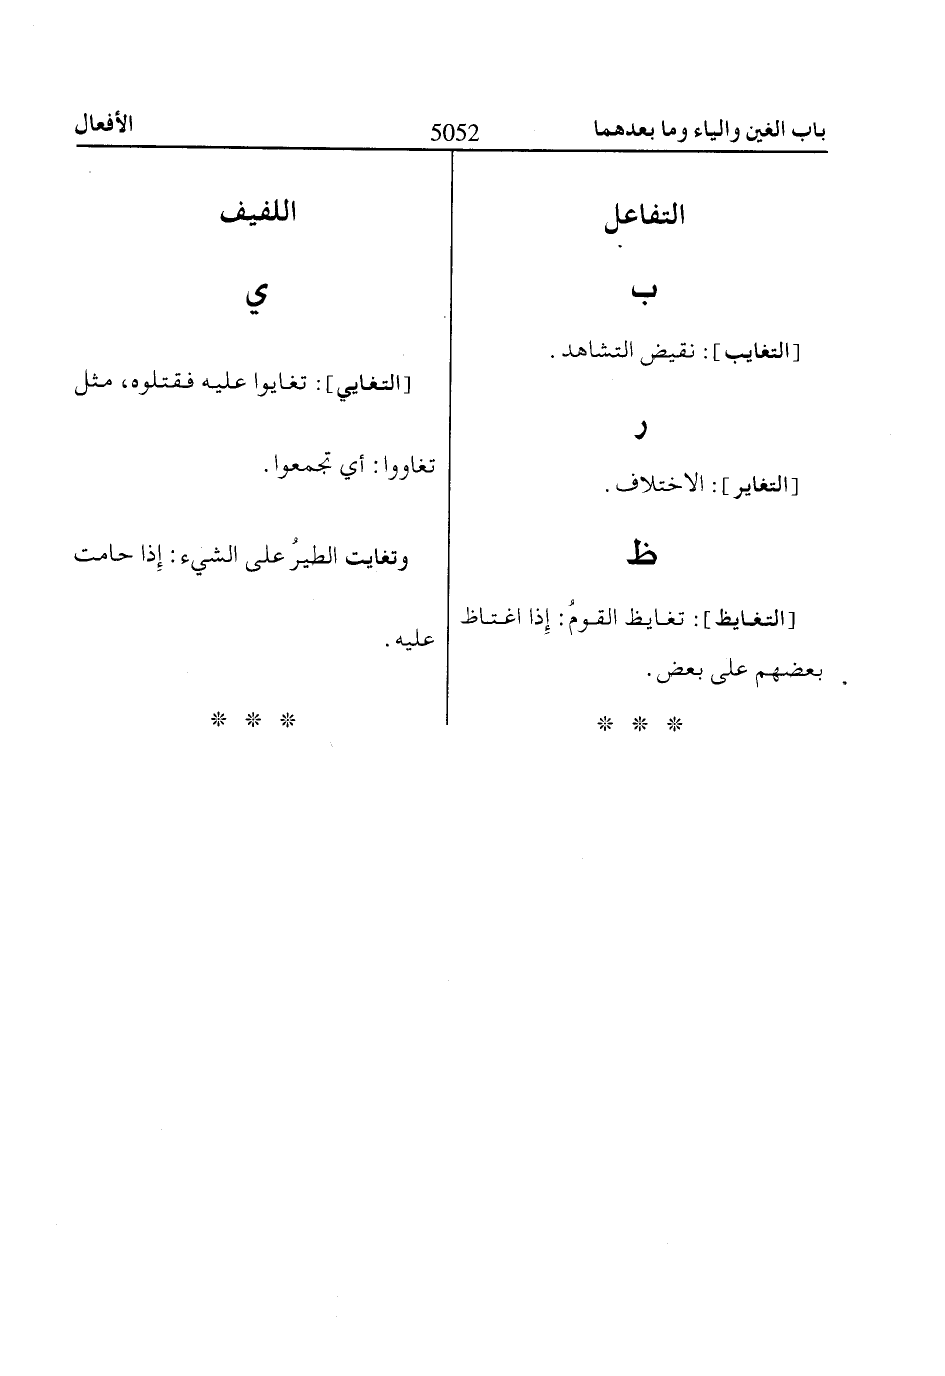 باب الغين والياء وما بعدهما 5052 الأفعال
التفاعل
ب
[التغايب]: نقيض التشاهد.
ر
[التغاير]: الاختلاف.
ظ
[التغايظ]: تغايظ القومُ: إذا اغتاظ
بعضهم على بعض.
* * *
اللفيف
ي
[التغايي]: تغايوا عليه فقتلوه، مثل
تغاووا: أي تجمعوا.
وتغايت الطيرُ على الشيء: إذا حامت
عليه.
* * *